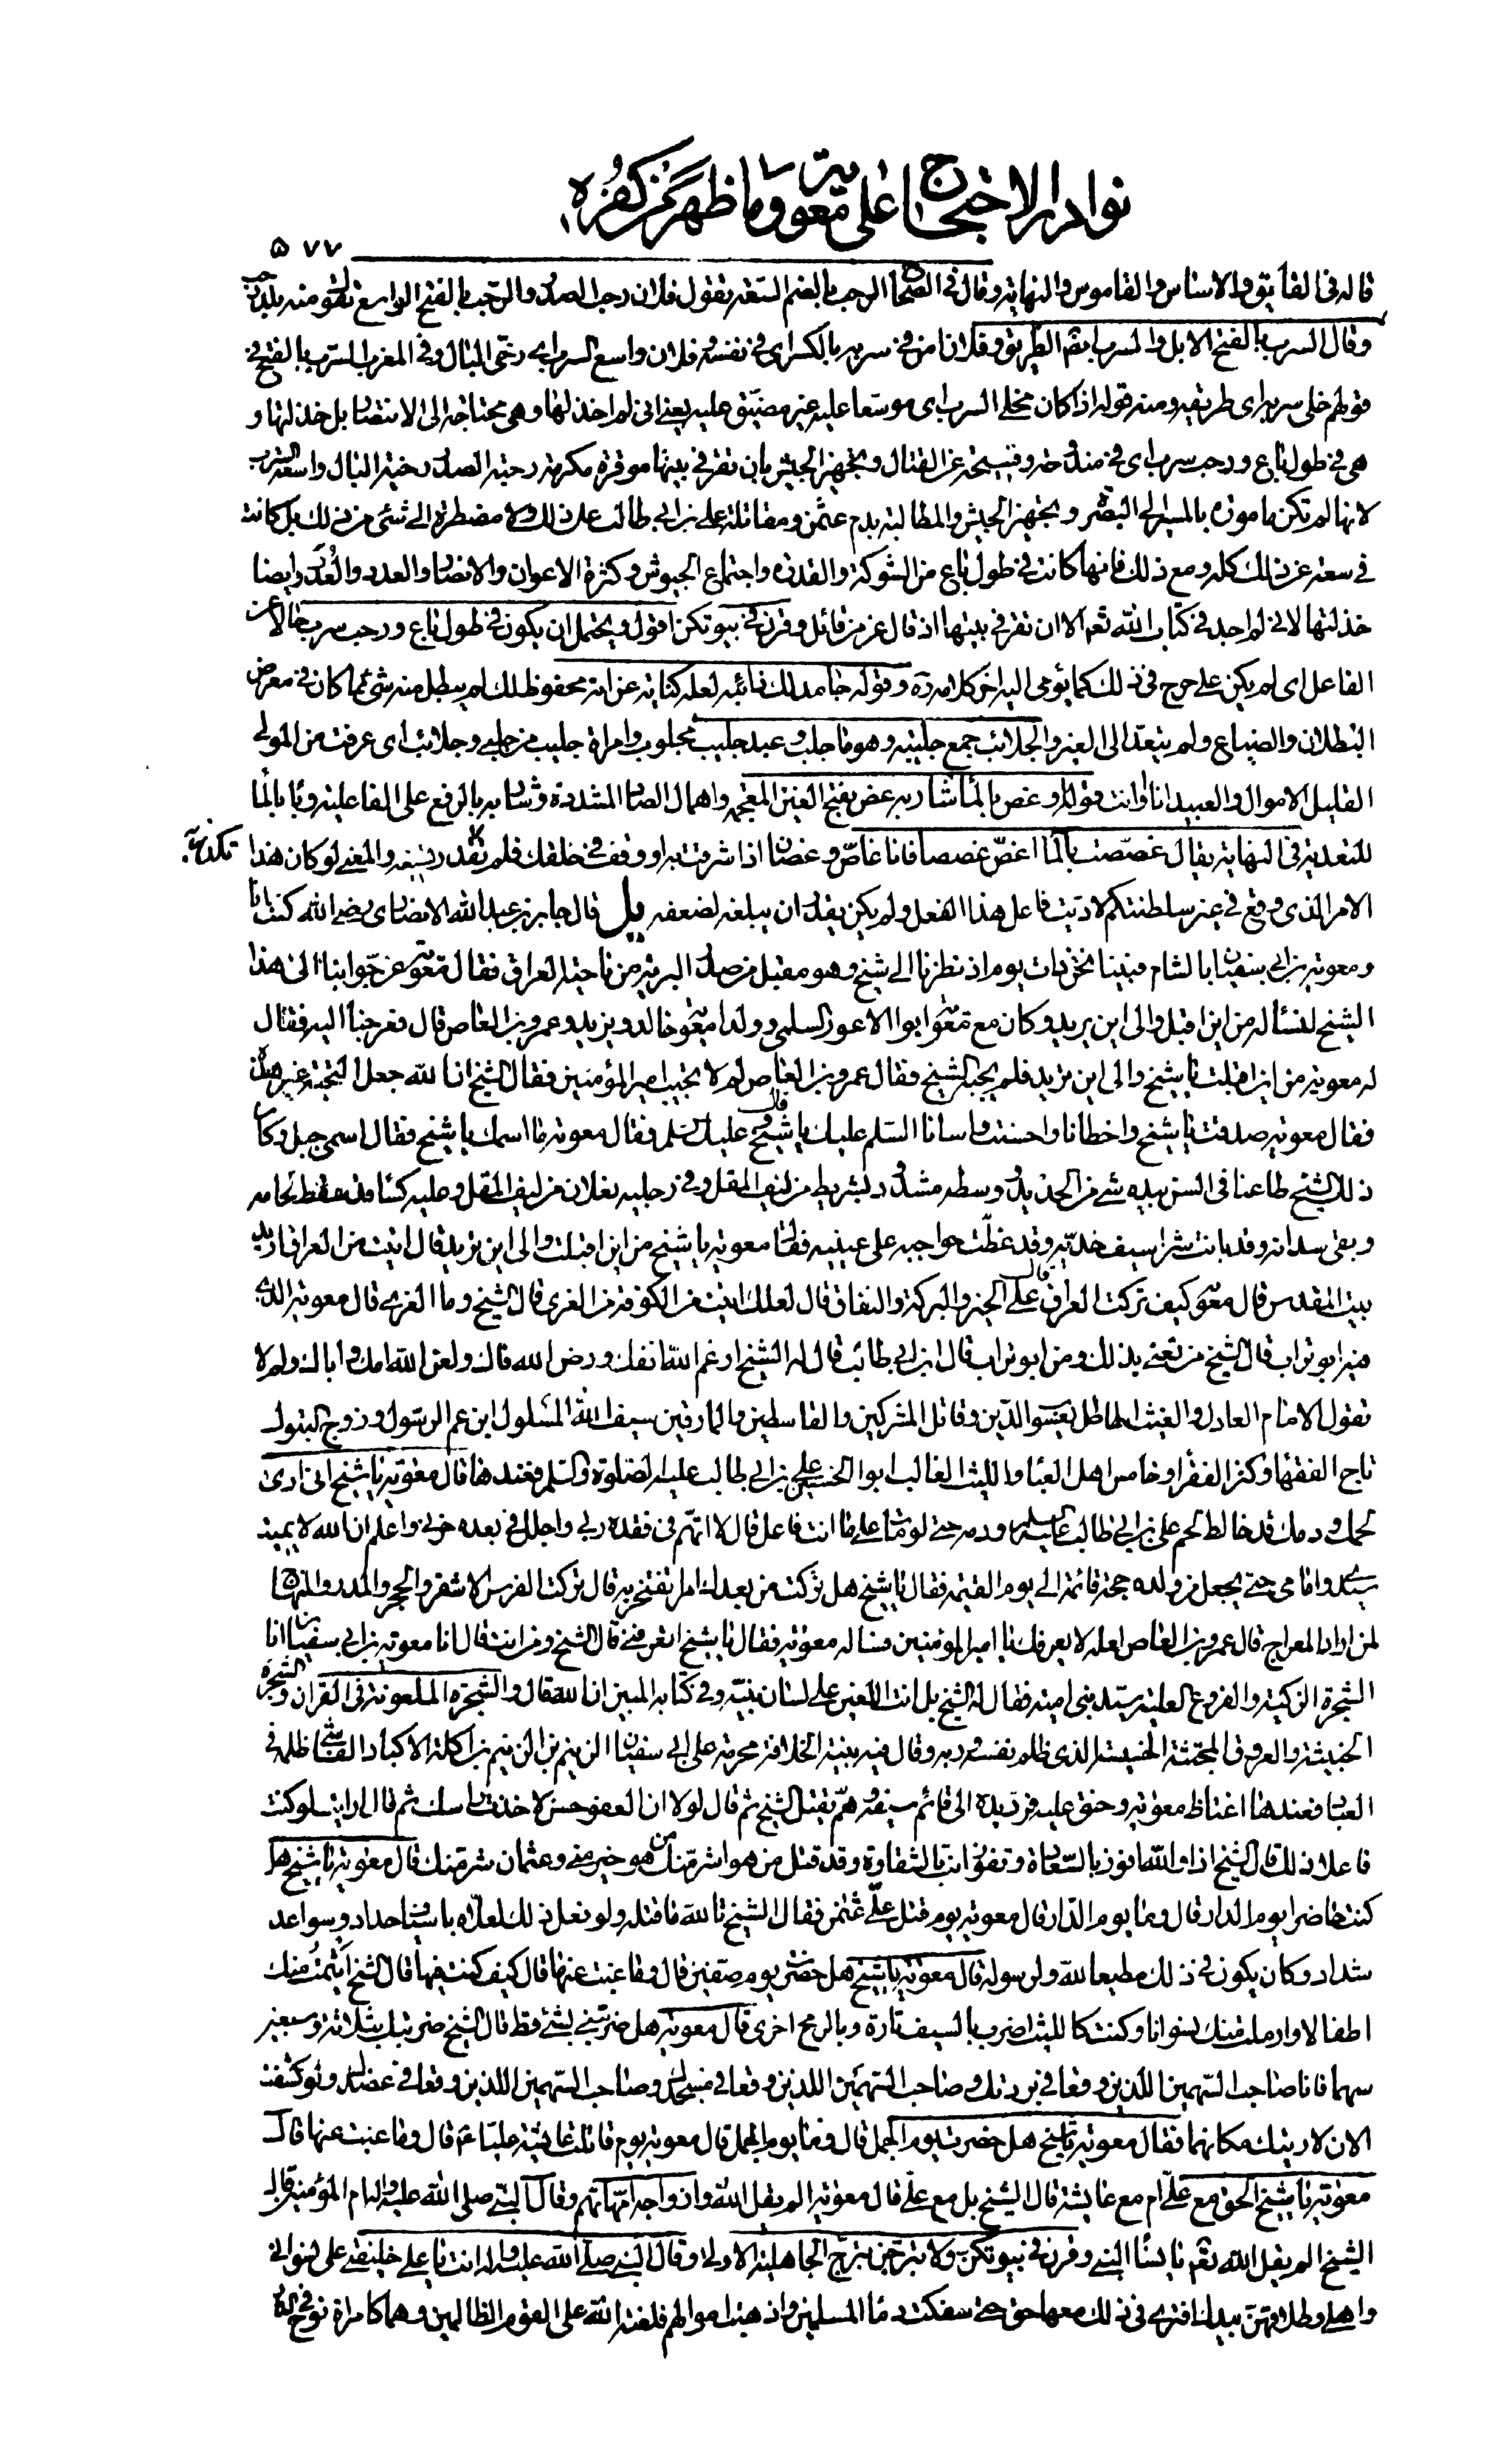 نوادر الاحتجاج على معوية وما ظهر من كفره
۵۷۷
قاله فى الفايق والاساس والقاموس والنهاية وقال فى الصحاح الرحب بالضم السعة يقول فلان رحب الصدر والرحب بالفتح الواسع تقول منه بلد رحب
وقال السرب بالفتح الابل والسرب ايضا الطريق وفلان امن فى سربه بالكسر اى فى نفسه وفلان واسع السرب اى رخى البال وفى المغرب السرب بالفتح فى
قولهم خلى سربه اى طريقه ومنه قوله اذا كان مخلى السرب اى موسعا عليه غير مضيق عليه يعنى انى لم اخذلها وهى محتاجة الى الانتصار بل خذلتها و
هى فى طول باع ورحب سرب اى فى مندوحة وفسحة عن القتال وتجهيز الجيش بان تقر فى بيتها موقرة مكرمة رحبة الصدر رخية البال واسعة السرب
لانها لم تكن مامورة بالمسير الى البصرة وتجهيز الجيش والمطالبة بدم عثمن ومقاتلة على بن ابى طالب على ذلك ولا مضطرة الى شئ من ذلك بل كانت
فى سعة عن ذلك كله ومع ذلك فانها كانت فى طول باع من الشوكة والقدرة واجتماع الجيوش وكثرة الاعوان والانصار والعدد والعُدد وايضا
خذلتها لانى لم اجد فى كتاب الله تعم الا ان تقر فى بيتها اذ قال عز من قائل وقرن فى بيوتكن اقول ويحتمل ان يكون فى طول باع ورحب سرب حالا عن
الفاعل اى لم يكن على حرج فى ذلك كما يؤمى اليه اخر كلامه ره وقوله جامد لك ذائبه لعله كناية عن انه محفوظ لك لم يبطل منه شئ مما كان فى معرض
البطلان والضياع ولم يتعد الى الغير والجلائب جمع جليبة وهو ما جلب وعبد جليب مجلوب وامراة جليب من جلبى وجلائب اى عرفت من المولى
القليل الاموال والعبيد انا وانت قوله وغص بالماء شاربه غص بفتح الغين المعجمة واهمال الصاد المشددة وشاربه بالرفع على الفاعلية وبا بالماء
للتعدية فى النهاية يقال غصصت بالماء اغص غصصا فانا غاص وغصان اذا شرقت به او وقف فى حلقك فلم تكد تسيغه والمعنى لو كان هذا
الامر الذى وقع فى غير سلطنتكم لاديت فاعل هذا الفعل ولم يكن يقدر ان يبلغه لضعفه يل قال جابر بن عبد الله الانصارى رضى الله كنت انا
ومعوية بن ابى سفيان بالشام فبينا نحن ذات يوم اذ نظرنا الى شيخ وهو مقبل من صدر البرية من ناحية العراق فقال معوية عرجوا بنا الى هذا
الشيخ لنسأله من اين اقبل والى اين يريد وكان مع معوية ابو الاعور السلمى وولدا معوية خالد ويزيد وعمرو بن العاص قال فعرجنا اليه فقال
له معوية من اين اقبلت يا شيخ والى اين تريد فلم يجبه الشيخ فقال عمرو بن العاص لم لا تجيب امير المؤمنين فقال الشيخ ان الله جعل التحية غير هذه
فقال معوية صدقت يا شيخ واخطانا واحسنت واسانا السلم عليك يا شيخ قال وعليك السلم فقال معوية ما اسمك يا شيخ فقال اسمى جبل وكان
ذلك الشيخ طاعنا فى السن بيده شئ من الحديد ووسطه مشدود بشريط من ليف المقل وفى رجليه نعلان من ليف المقل وعليه كساء قد سقط لحامه
وبقى سداته وقد بانت شراسيف خديه وقد غطت حواجبه على عينيه فقال معوية يا شيخ من اين اقبلت والى اين تريد قال اتيت من العراق اريد
بيت المقدس قال معوية كيف تركت العراق قال على الخير والبركة والنفاق قال لعلك اتيت من الكوفة من الغرى قال الشيخ وما الغرى قال معوية الذى
فيه ابو تراب قال الشيخ من تعنى بذلك ومن ابو تراب قال ابن ابى طالب قال له الشيخ ارغم الله انفك ورض الله فاك ولعن الله امك واباك ولم لا
تقول الامام العادل والغيث الهاطل يعسوب الدين وقاتل المشركين والقاسطين والمارقين سيف الله المسلول ابن عم الرسول وزوج البتول
تاج الفقهاء وكنز الفقراء وخامس اهل العباء والليث الغالب ابو الحسين على بن ابى طالب عليه الصلوة والسلم فعندها قال معوية يا شيخ انى ارى
لحمك ودمك قد خالط لحم على بن ابى طالب عليه السلم ودمه حتى لو مات على ما انت فاعل قال لا اتهم فى فقده ربى واجلل فى بعده حزنى واعلم ان الله لا يميت
سيدى وامامى حتى يجعل من ولده حجة قائمة الى يوم القيمة فقال يا شيخ هل تركت من بعدك امرا تفتخر به قال تركت الفرس الاشقر والحجر والمدر والمنهاج
لمن اراد المعراج قال عمرو بن العاص لعله لا يعرفك يا امير المؤمنين فساله معوية فقال يا شيخ اتعرفنى قال الشيخ ومن انت قال انا معوية بن ابى سفيان انا
الشجرة الزكية والفروع العلية سيد بنى امية فقال له الشيخ بل انت اللعين على لسان نبيه وفى كتابه المبين ان الله قال والشجرة الملعونة فى القران والشجرة
الخبيثة والعروق المجتثة الخسيسة الذى ظلم نفسه وربه وقال فيه نبيه الخلافة محرمة على ابى سفيان الزنيم بن الزنيم بن اكلة الاكباد الفاشى ظلمه فى
العباد فعندها اغتاظ معوية وحنق عليه فرد يده الى قائم سيفه وهم بقتل الشيخ ثم قال لولا ان العفو حسن لاخذت راسك ثم قال ارايت لو كنت
فاعلا ذلك قال الشيخ اذا والله افوز بالسعادة وتفوز انت بالشقاوة وقد قتل من هو اشر منك من هو خير منى وعثمان شر منك قال معوية يا شيخ هل
كنت حاضرا يوم الدار قال وما يوم الدار قال معوية يوم قتل على عثمن فقال الشيخ تالله ما قتله ولو فعل ذلك لعلاه باسياف حداد وسواعد
شداد وكان يكون فى ذلك مطيعا لله ولرسوله قال معوية يا شيخ هل حضرت يوم صفين قال وما غبت عنها قال كيف كنت فيها قال الشيخ ايتمت منك
اطفالا وارملت منك نسوانا وكنت كالليث اضرب بالسيف تارة وبالرمح اخرى قال معوية هل ضربتنى بشئ قط قال الشيخ ضربتك بثلاثة وسبعين
سهما فانا صاحب السهمين الذين وقعا فى بردتك وصاحب السهمين اللذين وقعا فى مسجدك وصاحب السهمين اللذين وقعا فى عضدك ولو كشفت
الان لاريتك مكانهما فقال معوية يا شيخ هل حضرت يوم الجمل قال وما يوم الجمل قال معوية يوم قاتلت عائشة عليا ع قال وما غبت عنها قال
معوية يا شيخ الحق مع على ام مع عايشة قال الشيخ بل مع على قال معوية الم يقل الله وازواجه امهاتهم وقال النبى صلى الله عليه واله ام المؤمنين قال
الشيخ الم يقل الله تعم يا نساء النبى وقرن فى بيوتكن ولا تبرجن تبرج الجاهلية الاولى وقال النبى صلى الله عليه واله انت يا على خليفتى على نسوانى
واهلى وطلاقهن بيدك افترى فى ذلك معها حق حتى سفكت دماء المسلمين واذهبت اموالهم فلعنة الله على القوم الظالمين وهما كامراة نوح فى النار